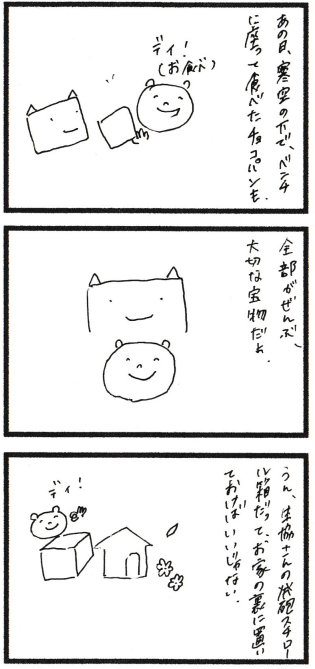 あの日、寒空の下で、ベンチ
に座って食べたチョコパンも。
ディ!
(お食べ)
全部がぜんぶ、
大切な宝物だよ。
うん、生協さんの発砲スチロー
ル箱だって、お家の裏に置い
ておけばいいじゃない。
ディ!